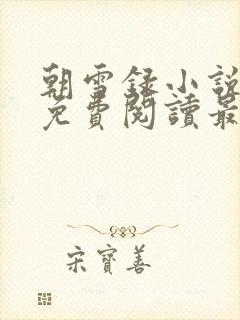 朝雪録小說
免費閱讀最
宋寶善